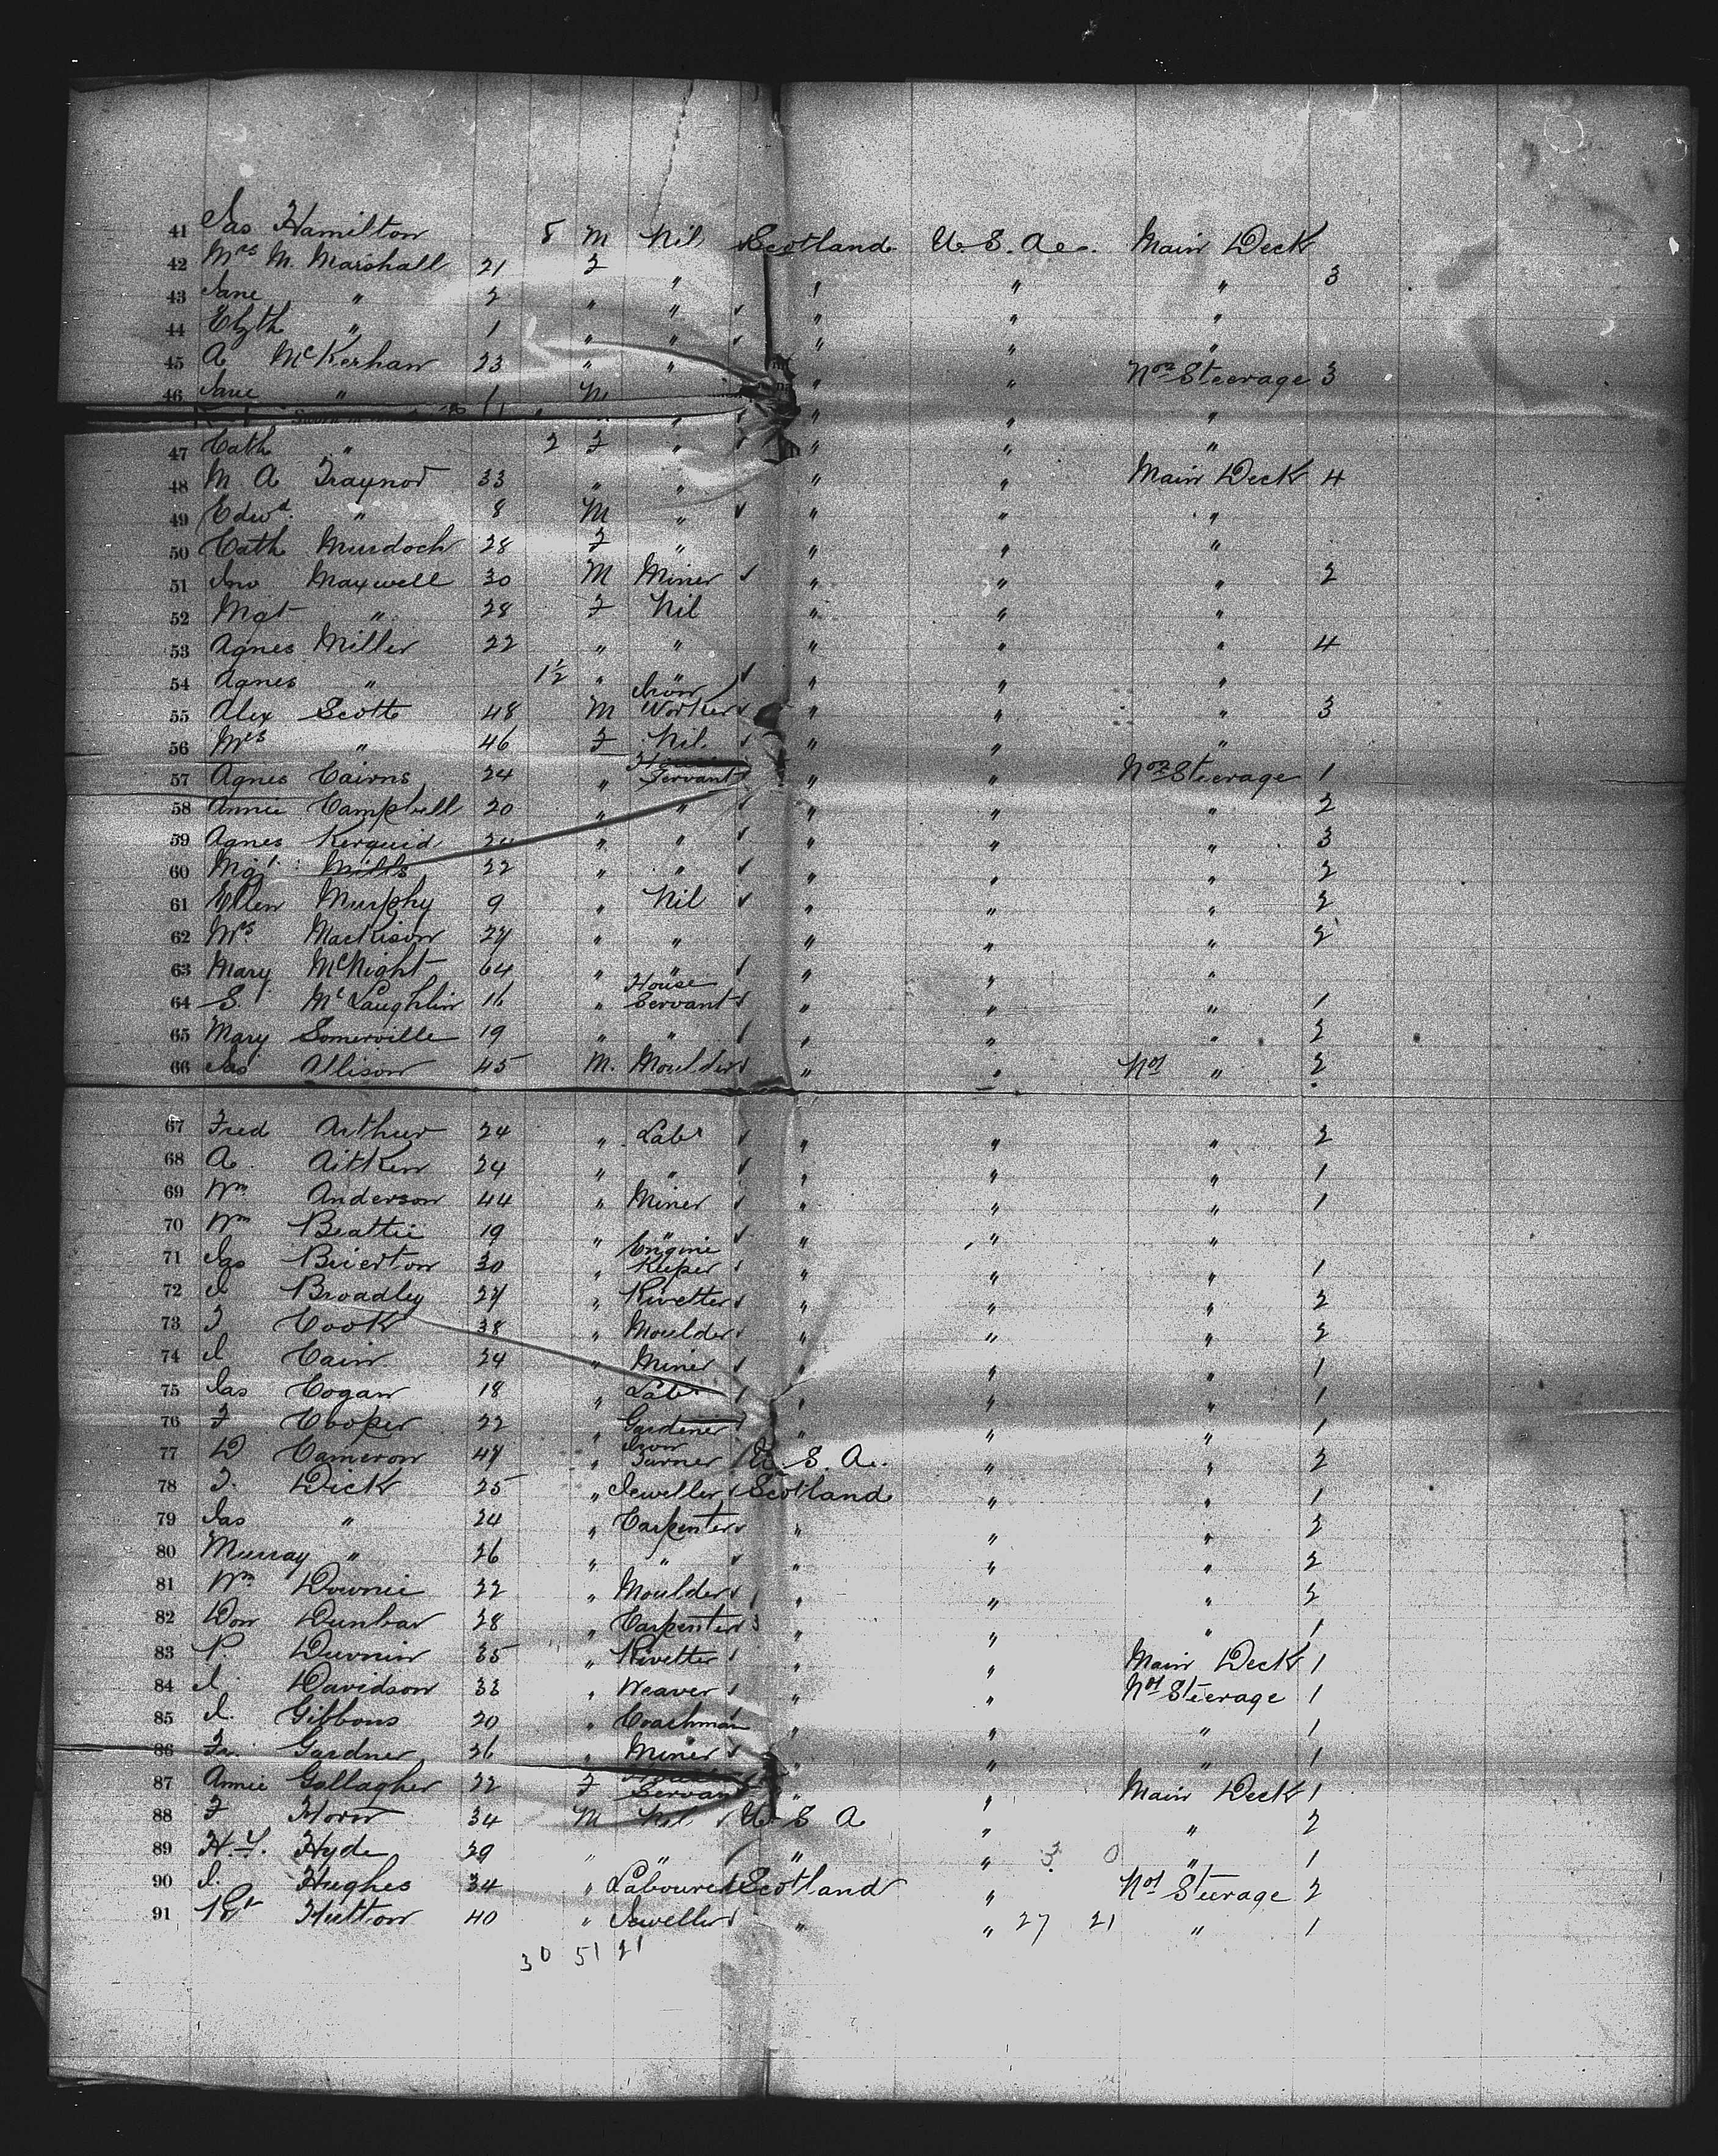 41 Jas Hamilton 8 M Nil Scotland U. S. A. Main Deck
42 Mrs M. Marshall 21 F " " " " 3
43 Jane " 2 " " " " "
44 Elzth " 1 " " " " "
45 A McKerhan 23 " " " " No 2 Steerage 3
46 Jane " 1 M " " " "
47 Cath " 2 F " " " "
48 M. A Traynor 33 " " " " Main Deck 4
49 Edwd. " 8 M " " " "
50 Cath Murdoch 28 F " " " "
51 Jno Maxwell 30 M Miner " " " 2
52 Mgt " 28 F Nil " " "
53 Agnes Miller 22 " " " " " 4
54 Agnes " 1½ " " " " "
55 Alex Scott 48 M Iron Worker " " " 3
56 Mrs " 46 F Nil. " " "
57 Agnes Cairns 24 " House Servant " " No 2 Steerage 1
58 Annie Campbell 20 " " " " " 2
59 Agnes Kerquid " " " " " 3
60 Mgt Mills 22 " " " " " 2
61 Ellen Murphy 9 " Nil " " " 2
62 Mrs Mackison 27 " " " " " 2
63 Mary McNight 64 " " " " "
64 S. McLaughlin 16 " House Servant " " " 1
65 Mary Somerville 19 " " " " " 2
66 Jas Allison 45 M. Moulder " " No 1 " 2
67 Fred Arthur 24 " Labr " " " 2
68 A. Aitken 24 " " " " " 1
69 Wm Anderson 44 " Miner " " " 1
70 Wm Beattie 19 " " " " "
71 Jas Brierton 30 " Engine Keeper " " " 1
72 J Broadley 27 " Rivetter " " " 2
73 T Cook 38 " Moulder " " " 2
74 J Cain 24 " Miner " " " 1
75 Jas Cogan 18 " Labr " " " 1
76 F Cooper 22 " Gardener " " " 1
77 D Cameron 47 " Iron Turner U. S. A. " " 2
78 T. Dick 25 " Jeweller Scotland " " 1
79 Jas " 24 " Carpenter " " " 2
80 Murray " 26 " " " " " 2
81 Wm Downie 22 " Moulder " " " 2
82 Don Dunbar 28 " Carpenter " " " 1
83 P. Durnin 35 " Rivetter " " Main Deck 1
84 J. Davidson 33 " Weaver " " No 1 Steerage 1
85 J. Gibbons 20 " Coachman " " " 1
86 Fr. Gardner 36 " Miner " " " 1
87 Annie Gallagher 22 F Servant " " Main Deck 1
88 F Horn 34 M Nil U. S A " " 2
89 H. Y. Hyde 29 " " " " 3 0 " 1
90 J. Hughes 34 " Labourer Scotland " No 1 Steerage 2
91 Rt Hutton 40 " Jeweller " " 27 21 " 1
30 51 21